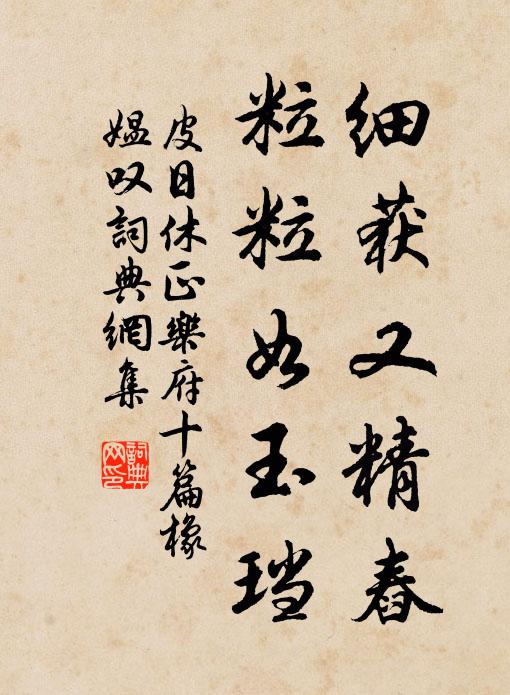 细获又精舂
粒粒如玉珰
皮日休正樂府十篇橡
媪叹詞典網集
詞典网印